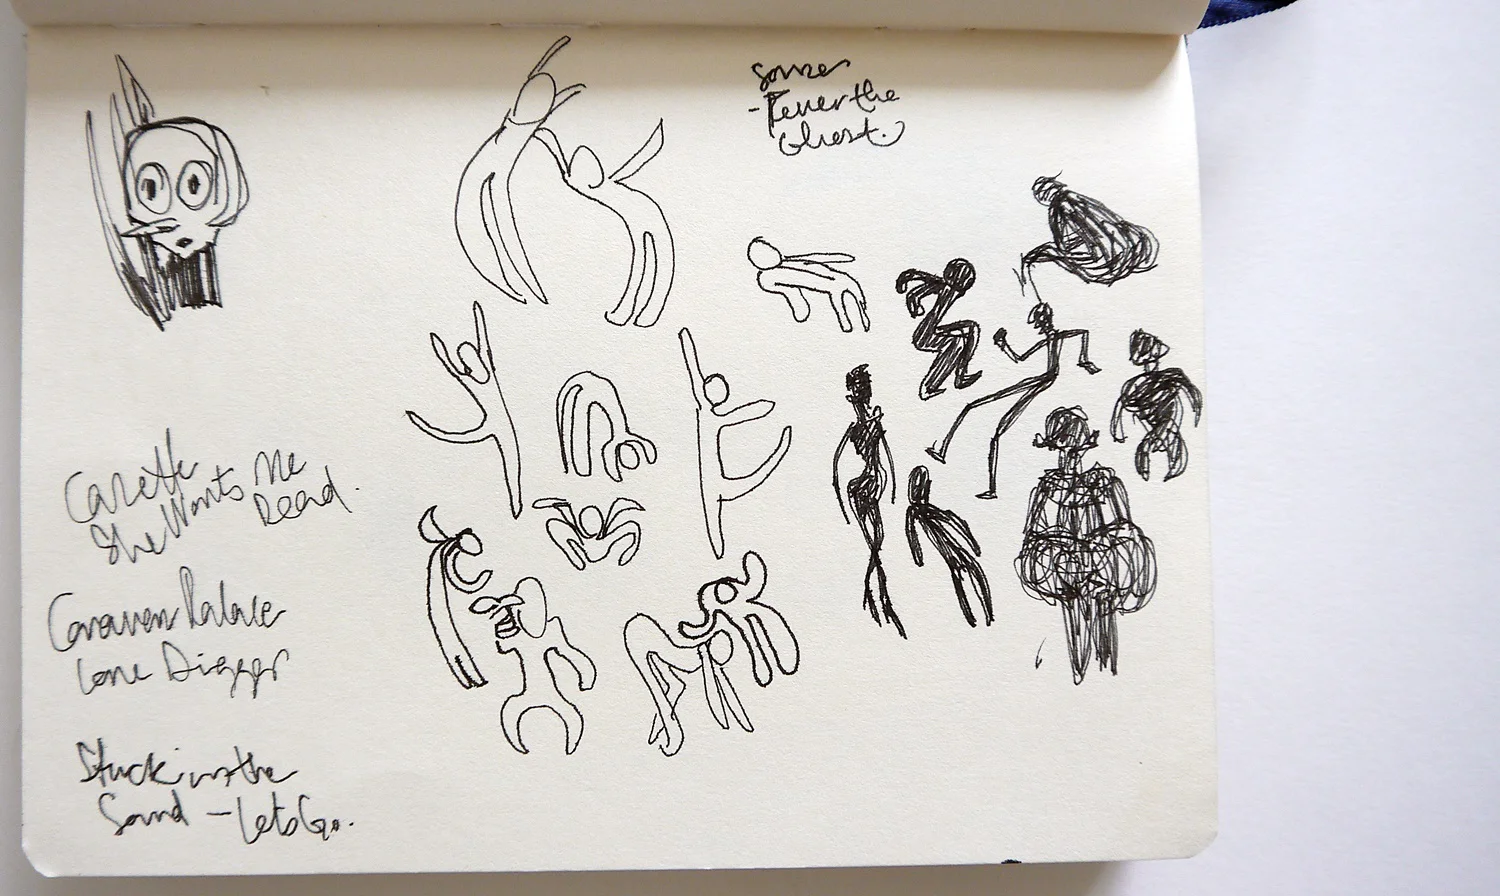 - Fever the
Ghost.
She Wants Me
Dead.
Caravan Palace
Lone Digger
Stuck in the
Sand - Lets Go.